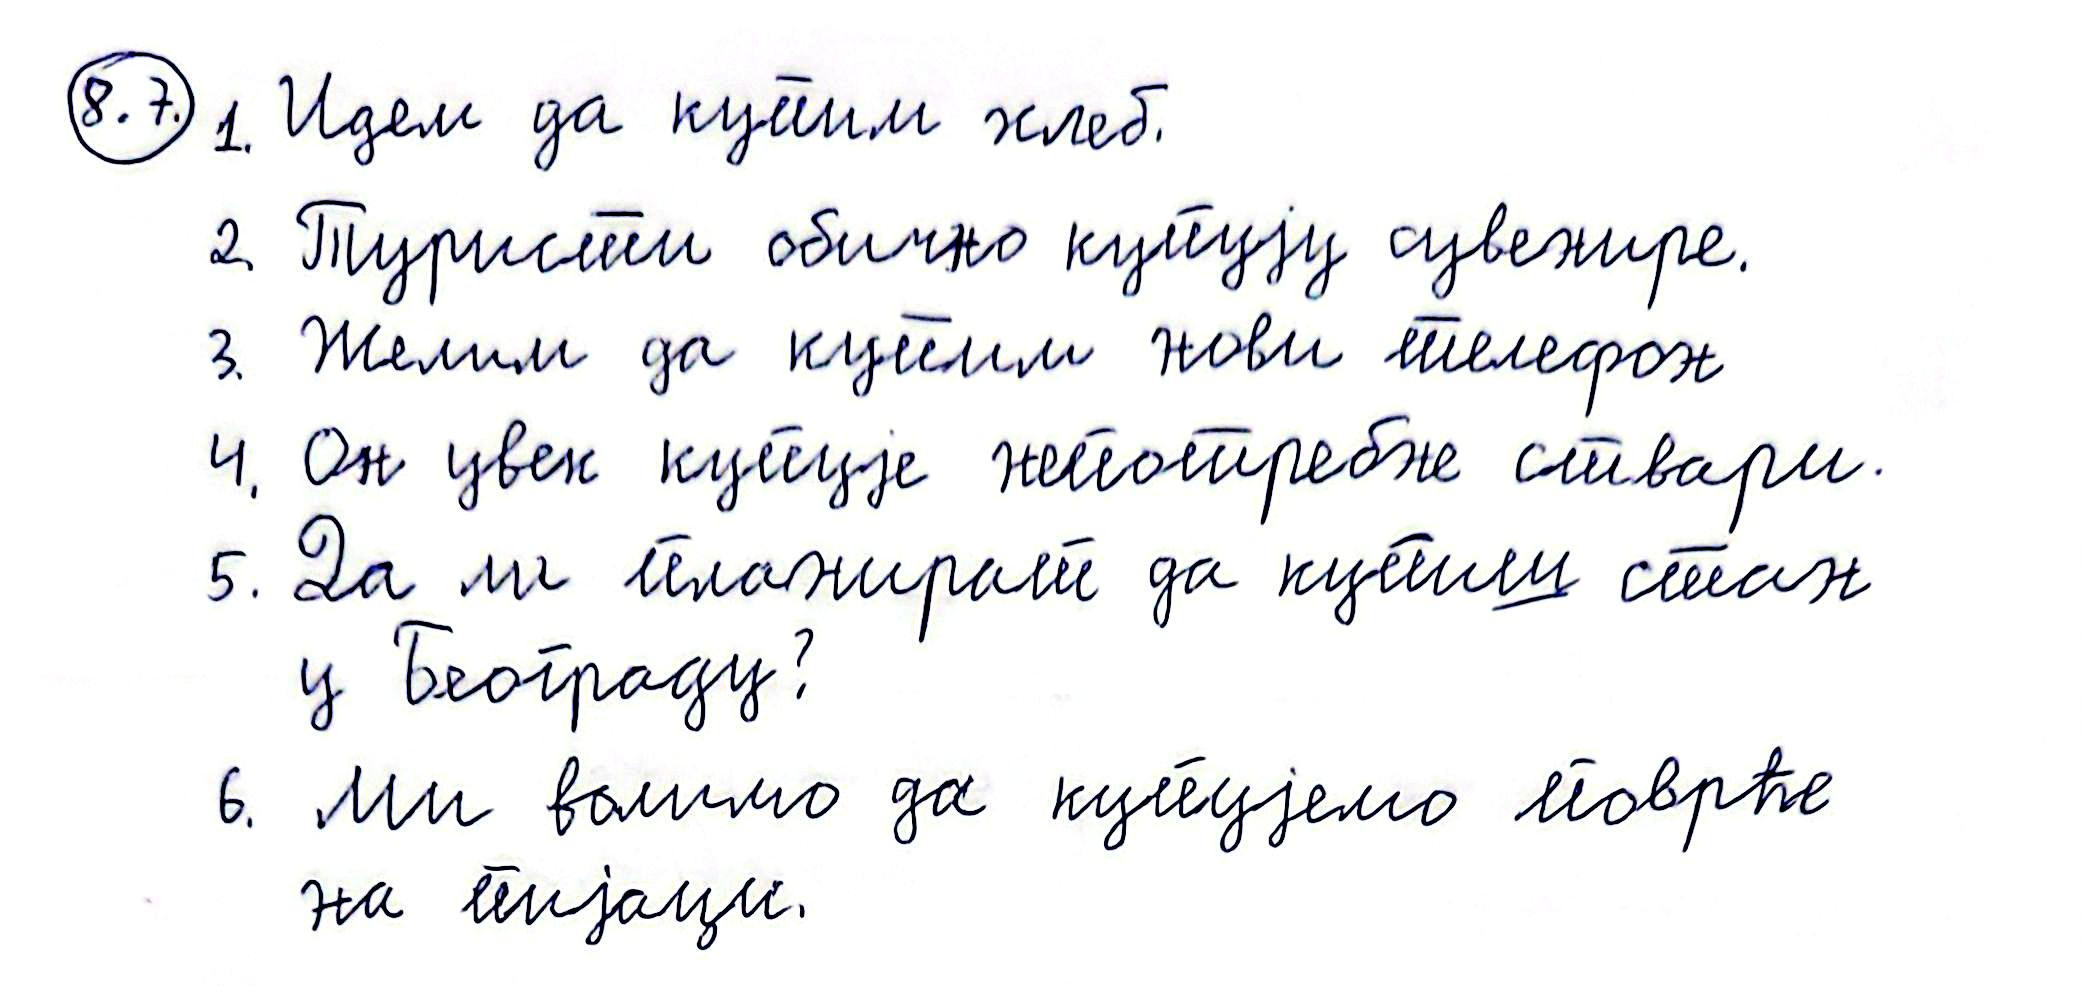 8.7. 1. Идем да купим хлеб.
2. Туристи обично купују сувенире.
3. Желим да купим нови телефон
4. Он увек купује непотребне ствари.
5. Да ли планират да купиш стан
у Београду?
6. Ми волимо да купујемо поврће
на пијаци.